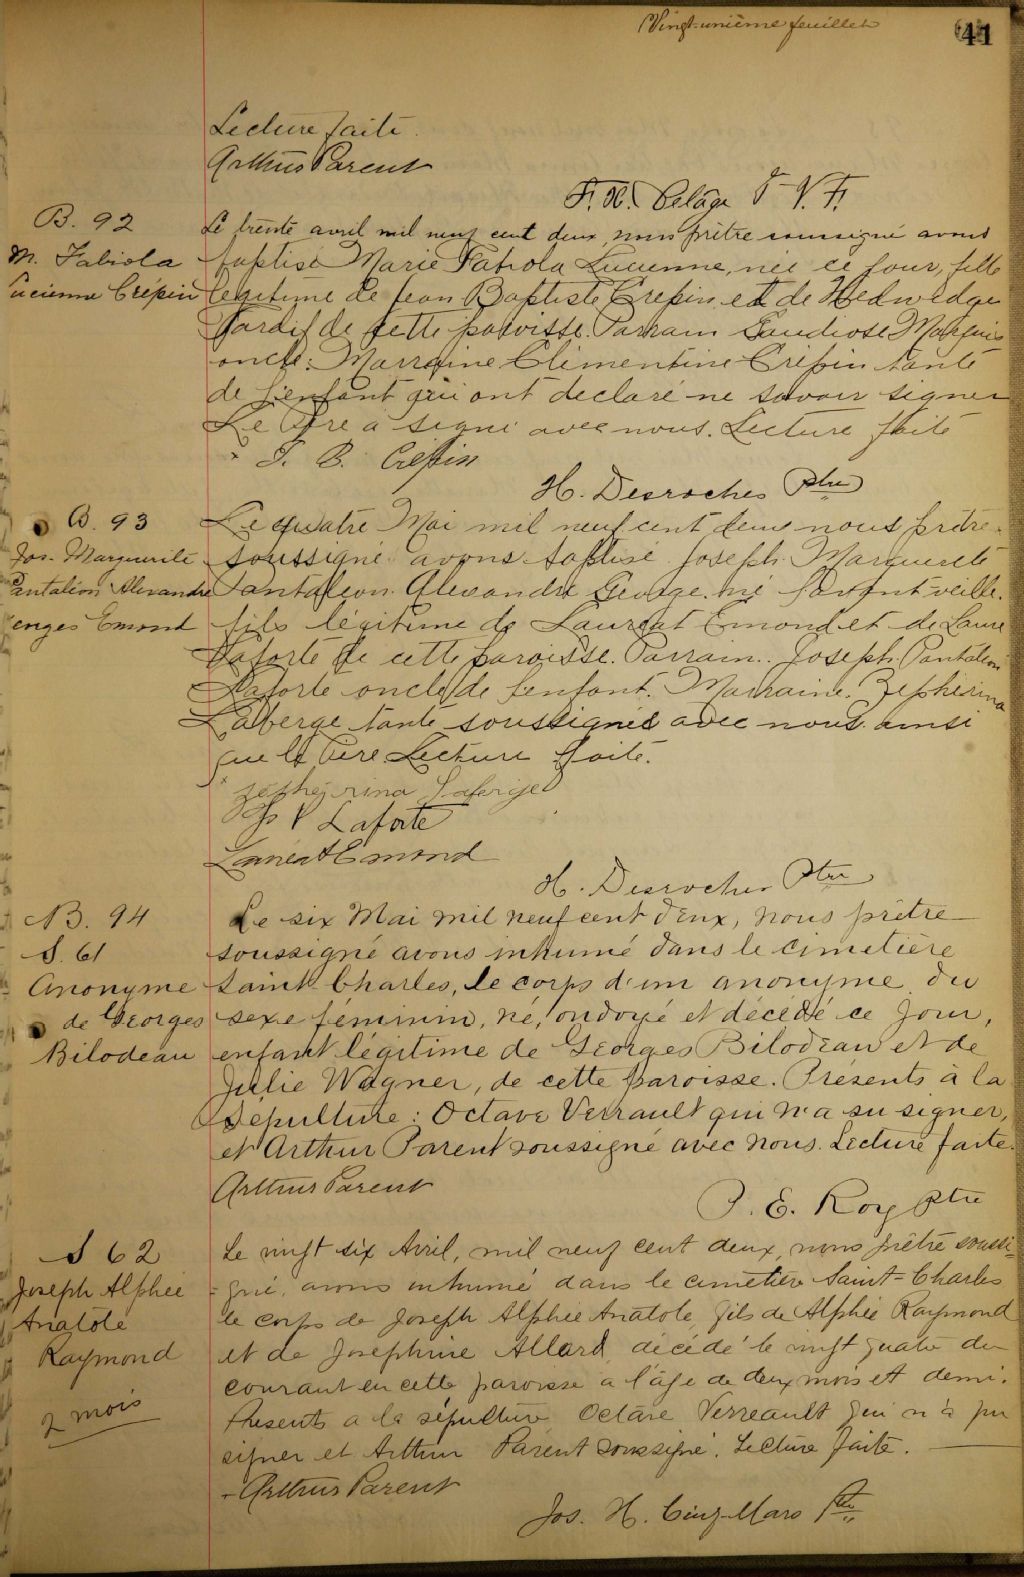 Vingt-unième feuillet
41
Lecture faite.
Arthur Parent
F. H. Belâge P. V. F.
B. 92
M. Fabiola
Lucienne Crépin
Le trente avril mil neuf cent deux, nous prêtre soussigné avons
baptisé Marie Fabiola Lucienne, née ce jour, fille
légitime de Jean Baptiste Crepin et de Hedwedge
Tardif de cette paroisse. Parrain Gaudiose Marquis
oncle: Marraine Clémentine Crépin tante
de l'enfant qui ont déclaré ne savoir signer
Le Père a signé avec nous. Lecture faite
J. B. Crépin
H. Desroches Ptre
B. 93
Jos. Marguerite
Pantalion Alexandre
Emond
Le quatre Mai mil neuf cent deux nous prêtre
soussigné avons baptisé Joseph Marguerite
Pantaleon Alexandre George né l'avant-veille.
fils légitime de Lauréat Emond et de Laure
Laforte de cette paroisse. Parrain.. Joseph Pantaleon
Laforte oncle de l'enfant. Marraine. Zephirina
Laberge tante soussignés avec nous ainsi
que le Père. Lecture faite.
Zephérina Laberge
Js P Laforte
Lauréat Emond
H. Desroches Ptre
B. 94
S. 61
Anonyme
de Georges
Bilodeau
Le six Mai mil neuf cent deux, nous prêtre
soussigné avons inhumé dans le cimetière
Saint-Charles, le corps d'un anonyme du
sexe féminin, né, ondoyé et décédé ce jour,
enfant légitime de Georges Bilodeau et de
Julie Wagner, de cette paroisse. Présents à la
Sépulture: Octave Verrault qui n'a su signer,
et Arthur Parent soussigné avec nous. Lecture faite.
Arthur Parent
P. E. Roy Ptre
S 62
Joseph Alphée
Anatole
Raymond
2 mois
Le vingt six Avril, mil neuf cent deux, nous prêtre soussi=
=gné, avons inhumé dans le cimetière Saint=Charles
le corps de Joseph Alphée Anatole, fils de Alphée Raymond
et de Josephine Allard, décédé le vingt quatre du
courant en cette paroisse à l'âge de deux mois et demi.
Présents a la sépulture Octave Verreault qui n'a pu
signer et Arthur Parent soussigné. Lecture faite.
Arthur Parent
Jos. H. Cinq-Mars Ptre